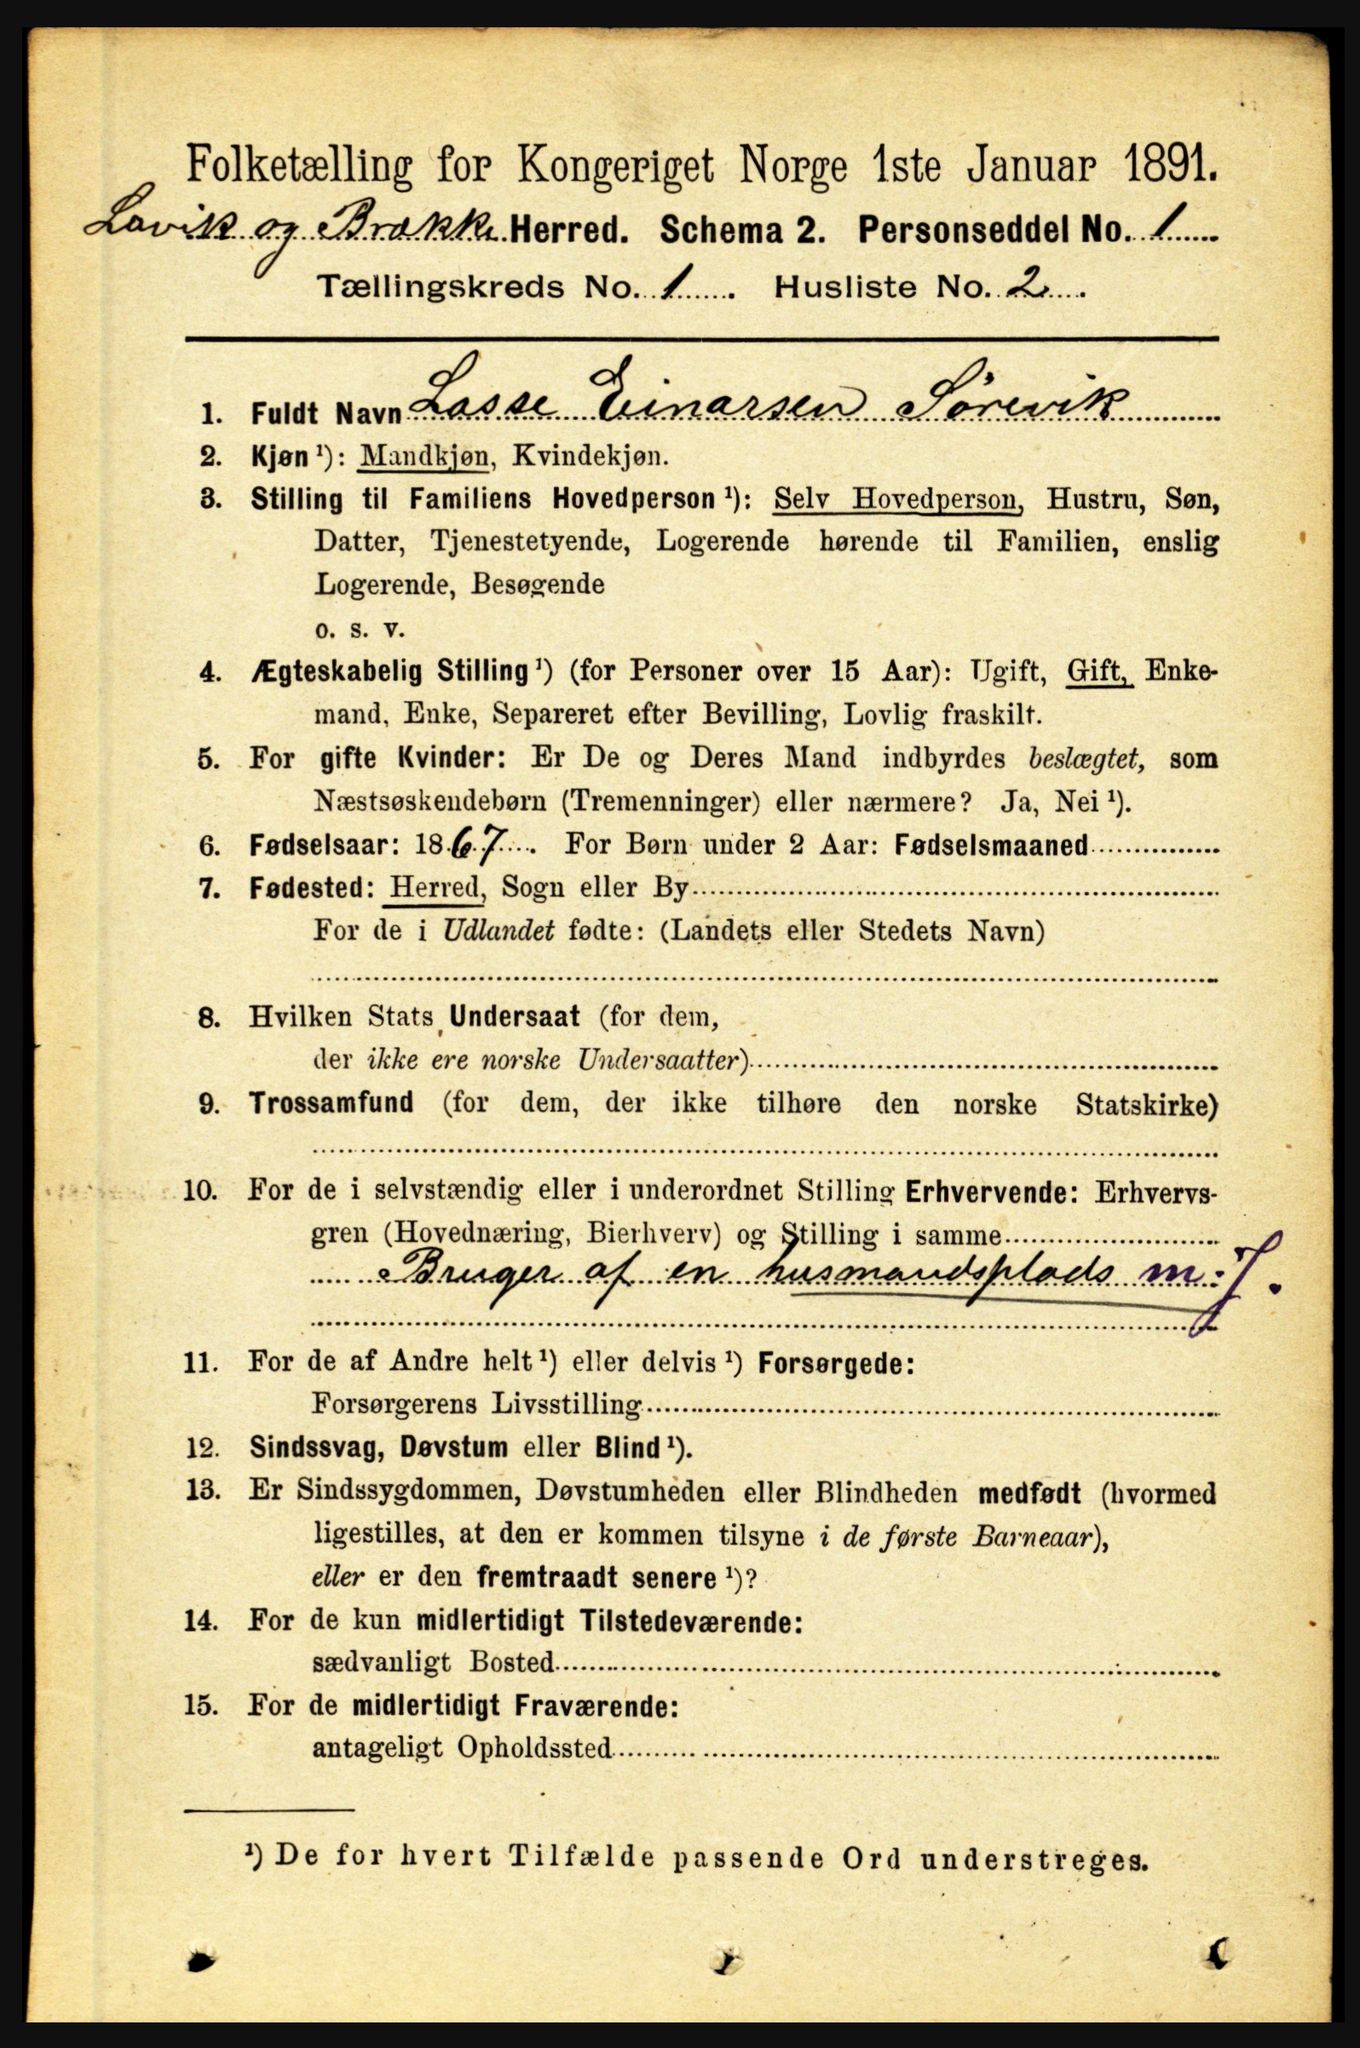 Folketælling for Kongeriget Norge 1ste Januar 1891.
Lavik og Brække Herred. Schema 2. Personseddel No. 1
Tællingskreds No. 1. Husliste No. 2.
1. Fuldt Navn Lasse Einarsen Sørevik
2. Kjøn ¹): Mandkjøn, Kvindekjøn.
3. Stilling til Familiens Hovedperson ¹): Selv Hovedperson, Hustru, Søn,
Datter, Tjenestetyende, Logerende hørende til Familien, enslig
Logerende, Besøgende
o. s. v.
4. Ægteskabelig Stilling ¹) (for Personer over 15 Aar): Ugift, Gift, Enke-
mand, Enke, Separeret efter Bevilling, Lovlig fraskilt.
5. For gifte Kvinder: Er De og Deres Mand indbyrdes beslægtet, som
Næstsøskendebørn (Tremenninger) eller nærmere? Ja, Nei ¹).
6. Fødselsaar: 1867. For Børn under 2 Aar: Fødselsmaaned
7. Fødested: Herred, Sogn eller By
For de i Udlandet fødte: (Landets eller Stedets Navn)
8. Hvilken Stats Undersaat (for dem,
der ikke ere norske Undersaatter)
9. Trossamfund (for dem, der ikke tilhøre den norske Statskirke)
10. For de i selvstændig eller i underordnet Stilling Erhvervende: Erhvervs-
gren (Hovednæring, Bierhverv) og Stilling i samme
Bruger af en husmandsplads m. J.
11. For de af Andre helt ¹) eller delvis ¹) Forsørgede:
Forsørgerens Livsstilling
12. Sindssvag, Døvstum eller Blind ¹).
13. Er Sindssygdommen, Døvstumheden eller Blindheden medfødt (hvormed
ligestilles, at den er kommen tilsyne i de første Barneaar),
eller er den fremtraadt senere ¹)?
14. For de kun midlertidigt Tilstedeværende:
sædvanligt Bosted
15. For de midlertidigt Fraværende:
antageligt Opholdssted
¹) De for hvert Tilfælde passende Ord understreges.